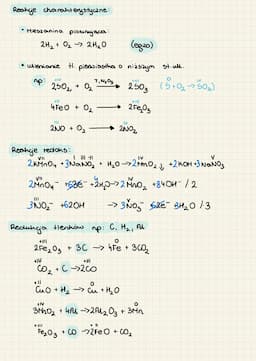 Reakcje charakterystyczne:
• mieszanina piorunująca:
2H₂ + O₂ → 2H₂O (egzo)
• utlenianie tl. pierwiastka o niższym st. utl.
np:
+IV +VI IV
2SO₂ + O₂ T, V₂O₅ → 2SO₃ (S + O₂ → SO₂)
+II +III
4FeO + O₂ → 2Fe₂O₃
+II +IV
2NO + O₂ → 2NO₂
Reakcje redoks:
VII I III -II IV
2KMnO₄ + 3NaNO₂ + H₂O → 2MnO₂↓ + 2KOH + 3NaNO₃
VII IV
2MnO₄⁻ + 3e⁻ + 2H₂O → 2MnO₂ + 4OH⁻ / 2
III V
3NO₂⁻ + 2OH → 3NO₃⁻ 2e⁻ H₂O / 3
Redukcja tlenków np: C, H₂, Al
+III 0
2Fe₂O₃ + 3C → 4Fe + 3CO₂
+IV +II
CO₂ + C → 2CO
+II 0
CuO + H₂ → Cu + H₂O
+IV
3MnO₂ + 4Al → 2Al₂O₃ + 3Mn
+III
Fe₂O₃ + CO → 2FeO + CO₂